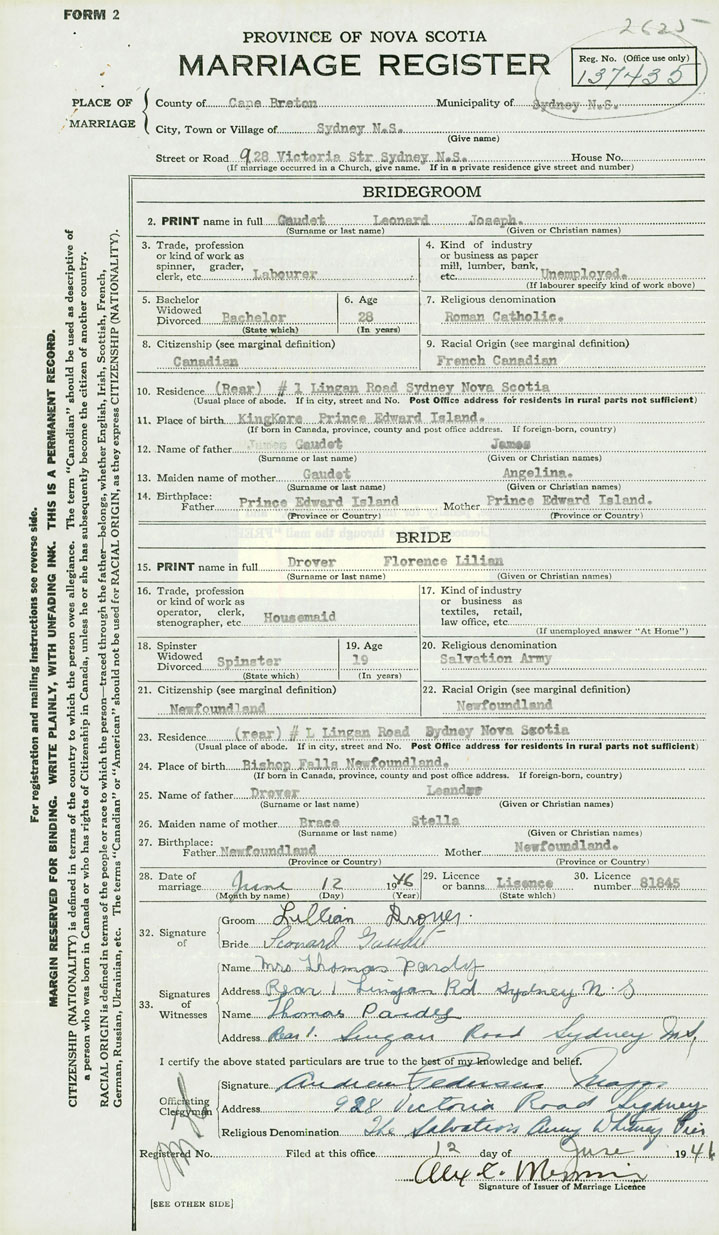 FORM 2
2625
PROVINCE OF NOVA SCOTIA
MARRIAGE REGISTER
Reg. No. (Office use only)
137435
PLACE OF MARRIAGE
County of Cape Breton Municipality of Sydney N.S.
City, Town or Village of Sydney N.S.
(Give name)
Street or Road 928 Victoria Str Sydney N.S. House No.
(If marriage occurred in a Church, give name. If in a private residence give street and number)
BRIDEGROOM
2. PRINT name in full Gaudet Leonard Joseph.
(Surname or last name) (Given or Christian names)
3. Trade, profession or kind of work as spinner, grader, clerk, etc. Labourer
4. Kind of industry or business as paper mill, lumber, bank, etc. Unemployed.
(If labourer specify kind of work above)
5. Bachelor Widowed Divorced Bachelor
(State which)
6. Age 28
(In years)
7. Religious denomination
Roman Catholic.
8. Citizenship (see marginal definition)
Canadian
9. Racial Origin (see marginal definition)
French Canadian
10. Residence (Rear) # 1 Lingan Road Sydney Nova Scotia
(Usual place of abode. If in city, street and No. Post Office address for residents in rural parts not sufficient)
11. Place of birth KingKore Prince Edward Island.
(If born in Canada, province, county and post office address. If foreign-born, country)
12. Name of father James Gaudet James
(Surname or last name) (Given or Christian names)
13. Maiden name of mother Gaudet Angelina.
(Surname or last name) (Given or Christian names)
14. Birthplace: Father Prince Edward Island Mother Prince Edward Island.
(Province or Country) (Province or Country)
BRIDE
15. PRINT name in full Drover Florence Lilian
(Surname or last name) (Given or Christian names)
16. Trade, profession or kind of work as operator, clerk, stenographer, etc Housemaid
17. Kind of industry or business as textiles, retail, law office, etc.
(If unemployed answer "At Home")
18. Spinster Widowed Divorced Spinster
(State which)
19. Age 19
(In years)
20. Religious denomination
Salvation Army
21. Citizenship (see marginal definition)
Newfoundland
22. Racial Origin (see marginal definition)
Newfoundland
23. Residence (rear) # L Lingan Road Sydney Nova Scotia
(Usual place of abode. If in city, street and No. Post Office address for residents in rural parts not sufficient)
24. Place of birth Bishop Falls Newfoundland.
(If born in Canada, province, county and post office address. If foreign-born, country)
25. Name of father Drover Leander
(Surname or last name) (Given or Christian names)
26. Maiden name of mother Brace Stella
(Surname or last name) (Given or Christian names)
27. Birthplace: Father Newfoundland Mother Newfoundland.
(Province or Country) (Province or Country)
28. Date of marriage June 12 1946
(Month by name) (Day) (Year)
29. Licence or banns Lisence
(State which)
30. Licence number 81845
32. Signature of
Groom Lillian Drover.
Bride Leonard Gaudet
33. Signatures of Witnesses
Name Mrs Thomas Pardy
Address Rear 1 Lingan Rd Sydney N.S
Name Thomas Pardy
Address Rear 1. Lingan Road Sydney N.S.
I certify the above stated particulars are true to the best of my knowledge and belief.
Officiating Clergyman
Signature Andrew Pedersen Major
Address 928 Victoria Road Sydney
Religious Denomination The Salvation Army Whitney Pier
Registered No. Filed at this office 12 day of June 1946
Signature of Issuer of Marriage Licence
[SEE OTHER SIDE]
For registration and mailing instructions see reverse side.
MARGIN RESERVED FOR BINDING. WRITE PLAINLY, WITH UNFADING INK. THIS IS A PERMANENT RECORD.
CITIZENSHIP (NATIONALITY) is defined in terms of the country to which the person owes allegiance. The term "Canadian" should be used as descriptive of
a person who was born in Canada or who has rights of Citizenship in Canada, unless he or she has subsequently become the citizen of another country.
RACIAL ORIGIN is defined in terms of the people or race to which the person—traced through the father—belongs, whether English, Irish, Scottish, French,
German, Russian, Ukrainian, etc. The terms "Canadian" or "American" should not be used for RACIAL ORIGIN, as they express CITIZENSHIP (NATIONALITY).